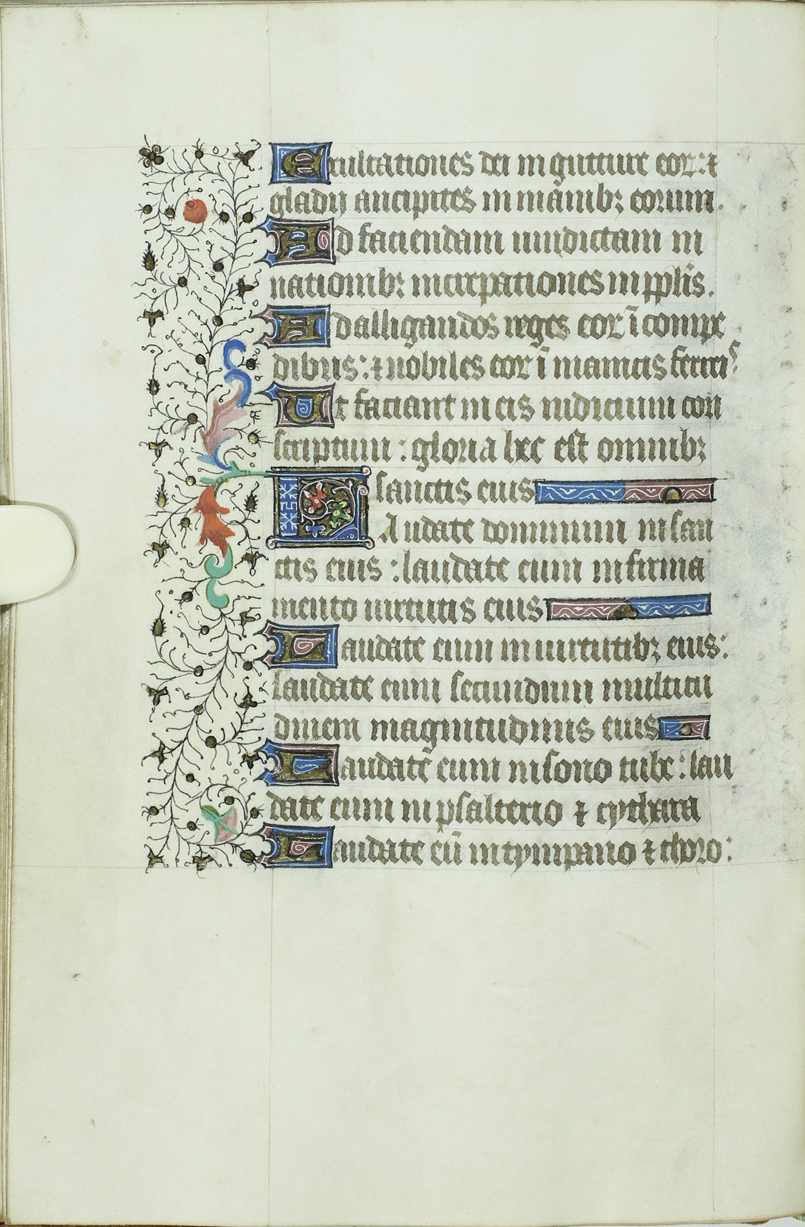 Exultationes dei in gutture eor: ⁊
gladij ancipites in manibꝫ eorum.
Ad faciendam uindictam in
nationibꝫ increpationes in pplis.
Ad alligandos reges eoꝝ ī compe
dibus: ⁊ nobiles eoꝝ ī manicis ferreis
Ut faciant in eis iudicium con
scriptum: gloria hec est omnibꝫ
sanctis eius
Laudate dominum in san
ctis eius: laudate eum in firma
mento uirtutis eius
Laudate eum in uirtutibꝫ eius:
laudate eum secundum multitu
dinem magnitudinis eius
Laudate eum in sono tube: lau
date eum in psalterio ⁊ cythara
Laudate eū in tympano ⁊ choro: